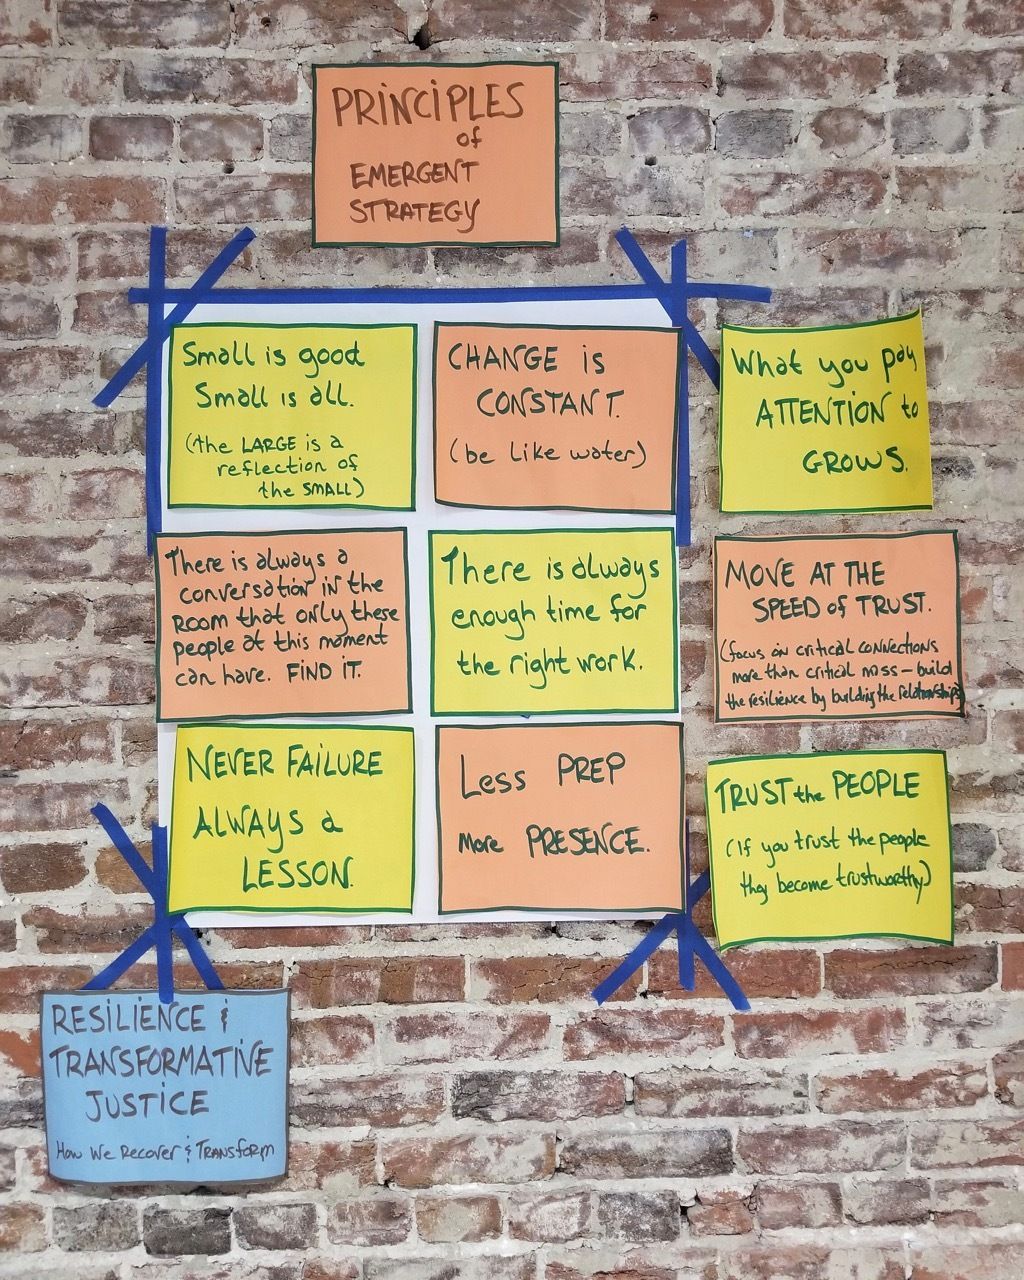 PRINCIPLES
of
EMERGENT
STRATEGY
Small is good
Small is all.
(the LARGE is a
reflection of
the SMALL)
CHANGE is
CONSTANT.
(be like water)
What you pay
ATTENTION to
GROWS.
There is always a
conversation in the
ROOM that only these
people at this moment
can have. FIND IT.
There is always
enough time for
the right work.
MOVE AT THE
SPEED of TRUST.
(focus on critical connections
more than critical mass - build
the resilience by building the relationships)
NEVER FAILURE
ALWAYS a
LESSON.
Less PREP
more PRESENCE.
TRUST the PEOPLE
(If you trust the people
they become trustworthy)
RESILIENCE &
TRANSFORMATIVE
JUSTICE
How We Recover & Transform